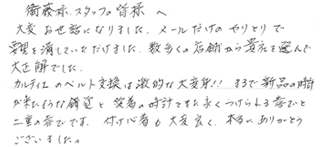 衛藤様、スタッフの皆様へ
大変お世話になりました。メールだけのやりとりで
要望を満していただけました。数多くの店舗から貴店を選んで
大正解でした。
カルティエのベルト交換は激的な大変身!! まるで新品の時計
が来たような錯覚と 愛着の時計とまた永くつけられる喜びと
二重の喜びです。付け心地も大変良く、本当にありがとう
ございました。